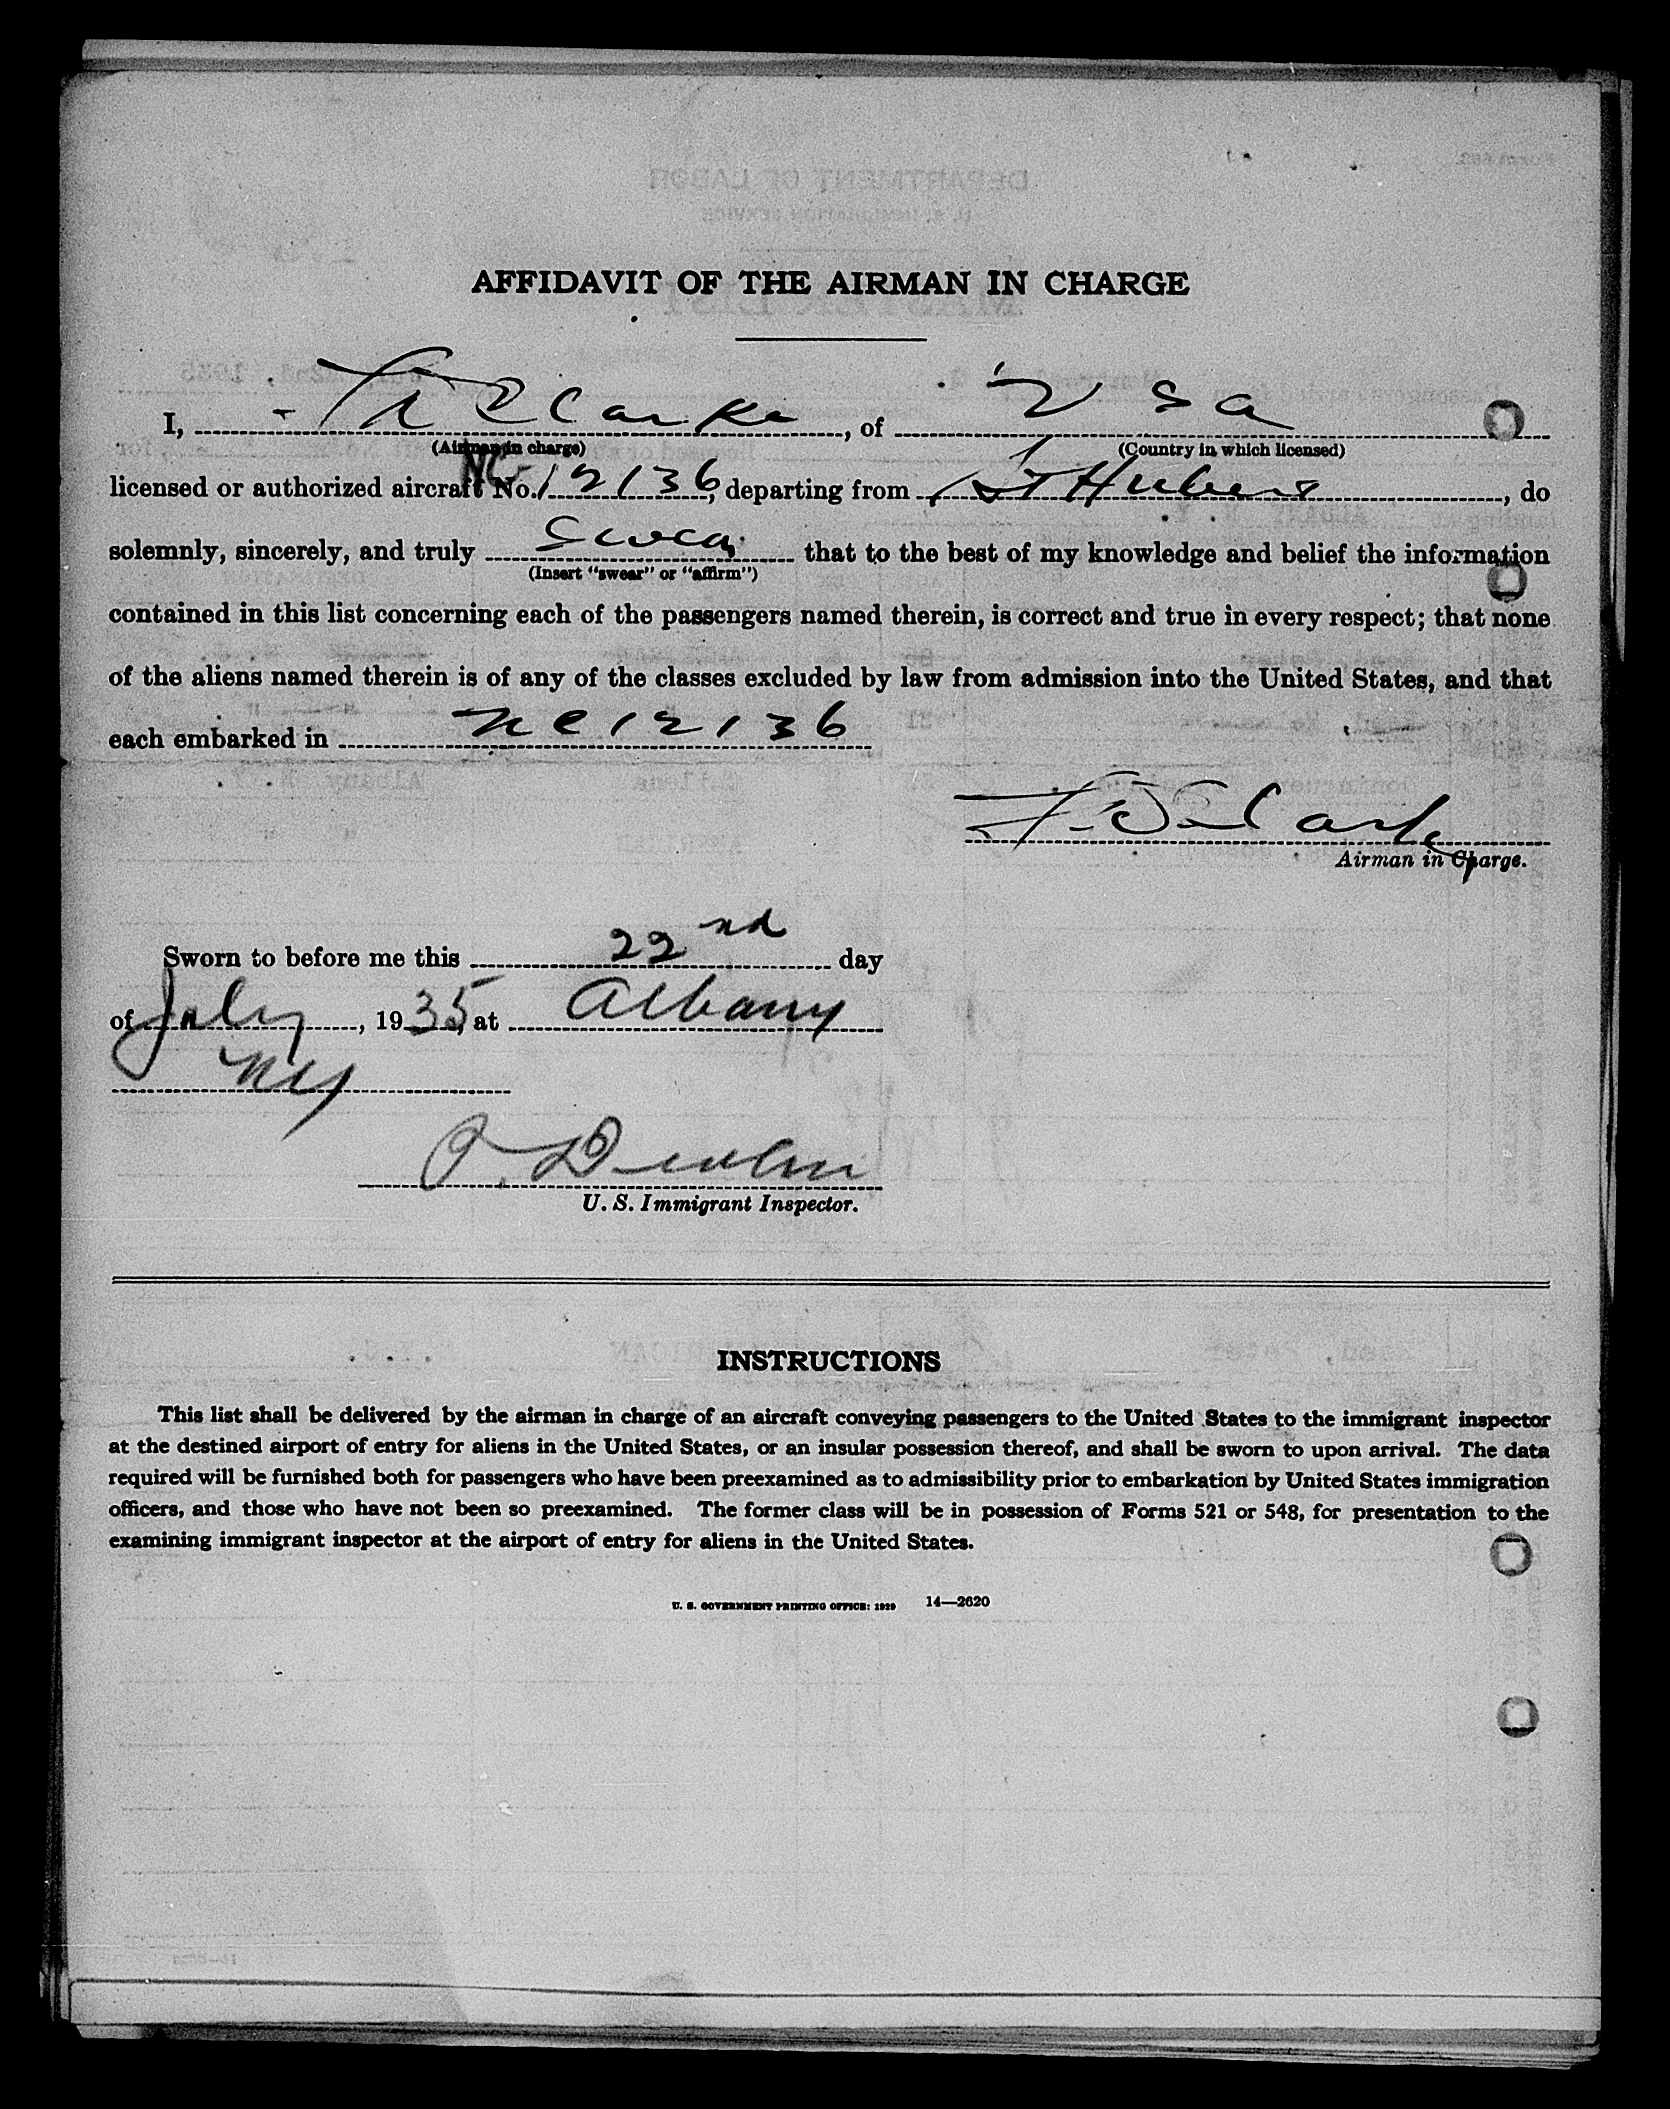 AFFIDAVIT OF THE AIRMAN IN CHARGE
I, Clarke, of USA
(Airman in charge) (Country in which licensed)
licensed or authorized aircraft No. NC-12136, departing from St Hubert, do
solemnly, sincerely, and truly swear that to the best of my knowledge and belief the information
(Insert "swear" or "affirm")
contained in this list concerning each of the passengers named therein, is correct and true in every respect; that none
of the aliens named therein is of any of the classes excluded by law from admission into the United States, and that
each embarked in NC12136
Clarke
Airman in Charge.
Sworn to before me this 22nd day
of July, 1935, at Albany
NY
U. S. Immigrant Inspector.
INSTRUCTIONS
This list shall be delivered by the airman in charge of an aircraft conveying passengers to the United States to the immigrant inspector
at the destined airport of entry for aliens in the United States, or an insular possession thereof, and shall be sworn to upon arrival. The data
required will be furnished both for passengers who have been preexamined as to admissibility prior to embarkation by United States immigration
officers, and those who have not been so preexamined. The former class will be in possession of Forms 521 or 548, for presentation to the
examining immigrant inspector at the airport of entry for aliens in the United States.
U. S. GOVERNMENT PRINTING OFFICE: 1929 14—2620